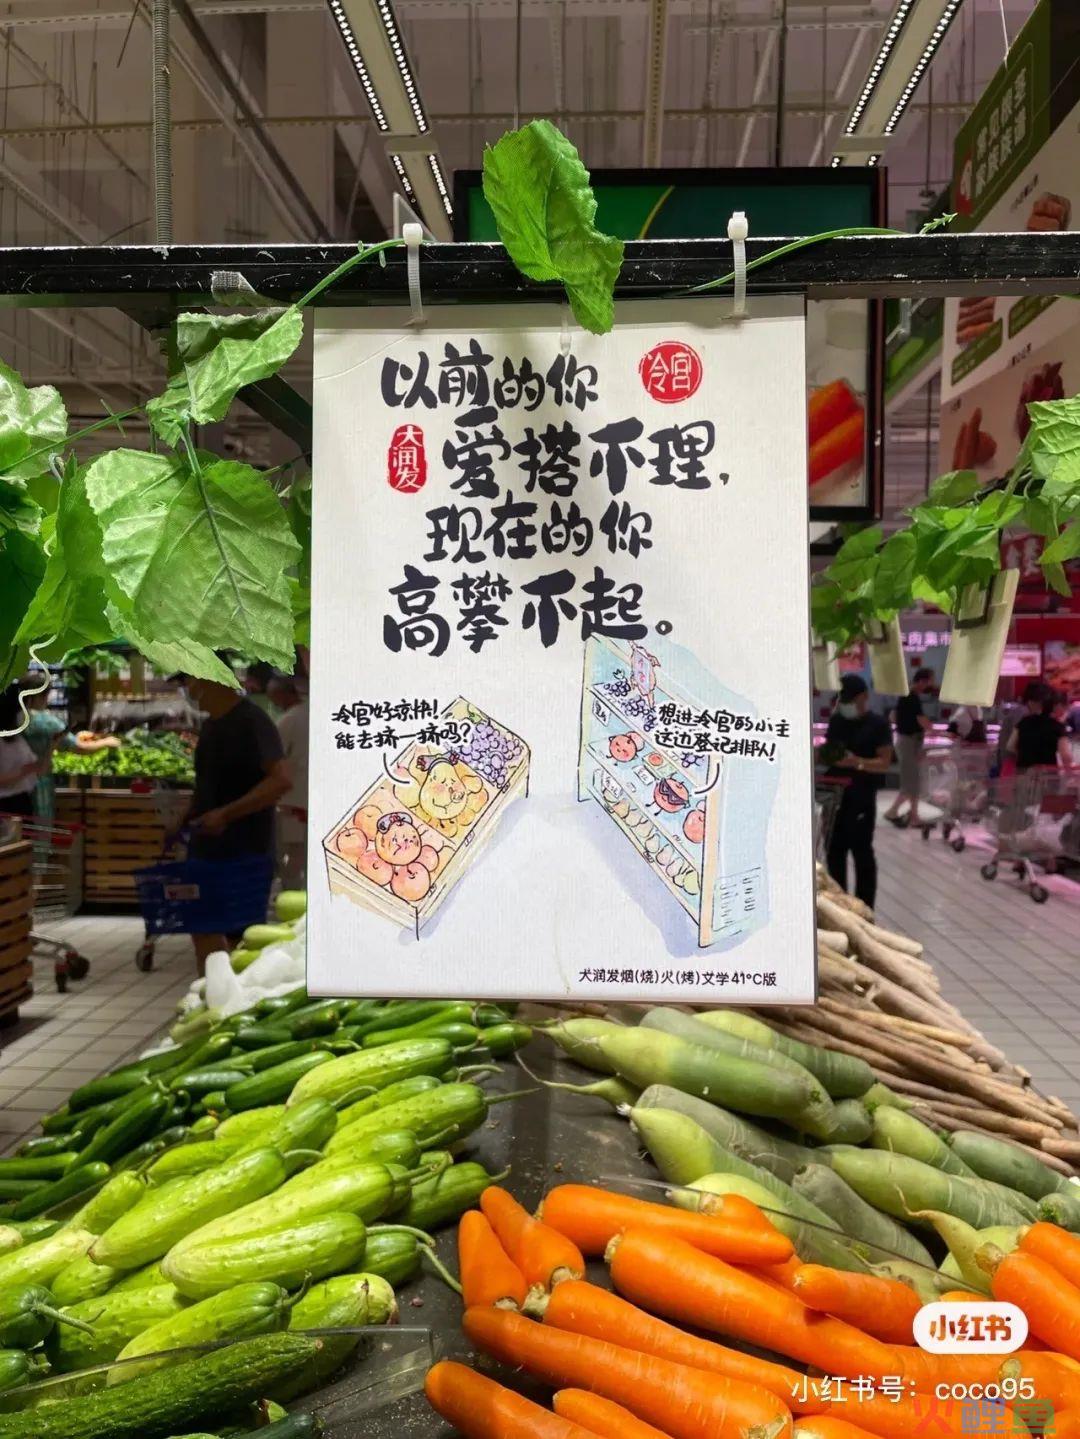 以前的你
冷宫
大润发
爱搭不理，
现在的你
高攀不起。
冷宫好凉快！
能去挤一挤吗？
想进冷宫的小主
这边登记排队！
大润发烟(烧)火(烤)文学41°C版
小红书
小红书号：coco95
火鲤鱼